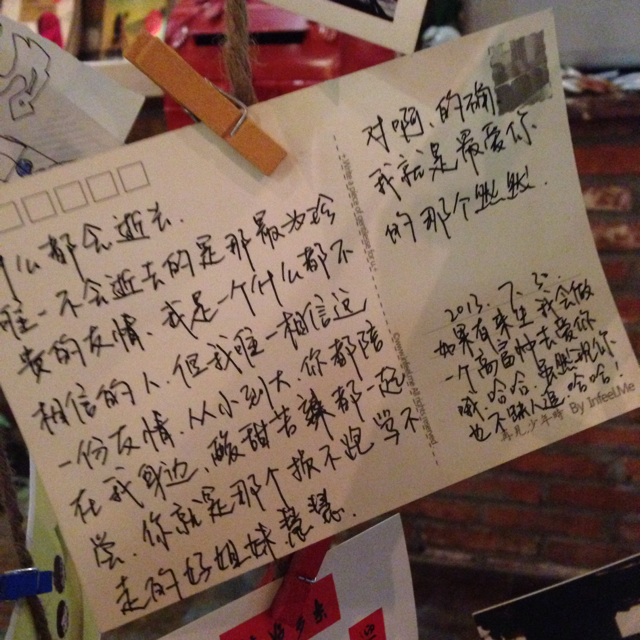 什么都会逝去.
唯一不会逝去的是那最为珍
贵的友情.我是一个什么都不
相信的人.但我唯一相信这
一份友情.从小到大.你都陪
在我身边.酸甜苦辣都一起
尝.你就是那个扳不跑骂不
走的好姐妹慧慧.
对啊.的确
我就是最爱你
的那个
2013.7.5
如果有来生我会做
一个高富帅去爱你
哦.哈哈
也不 哈哈!
By InfeelMe